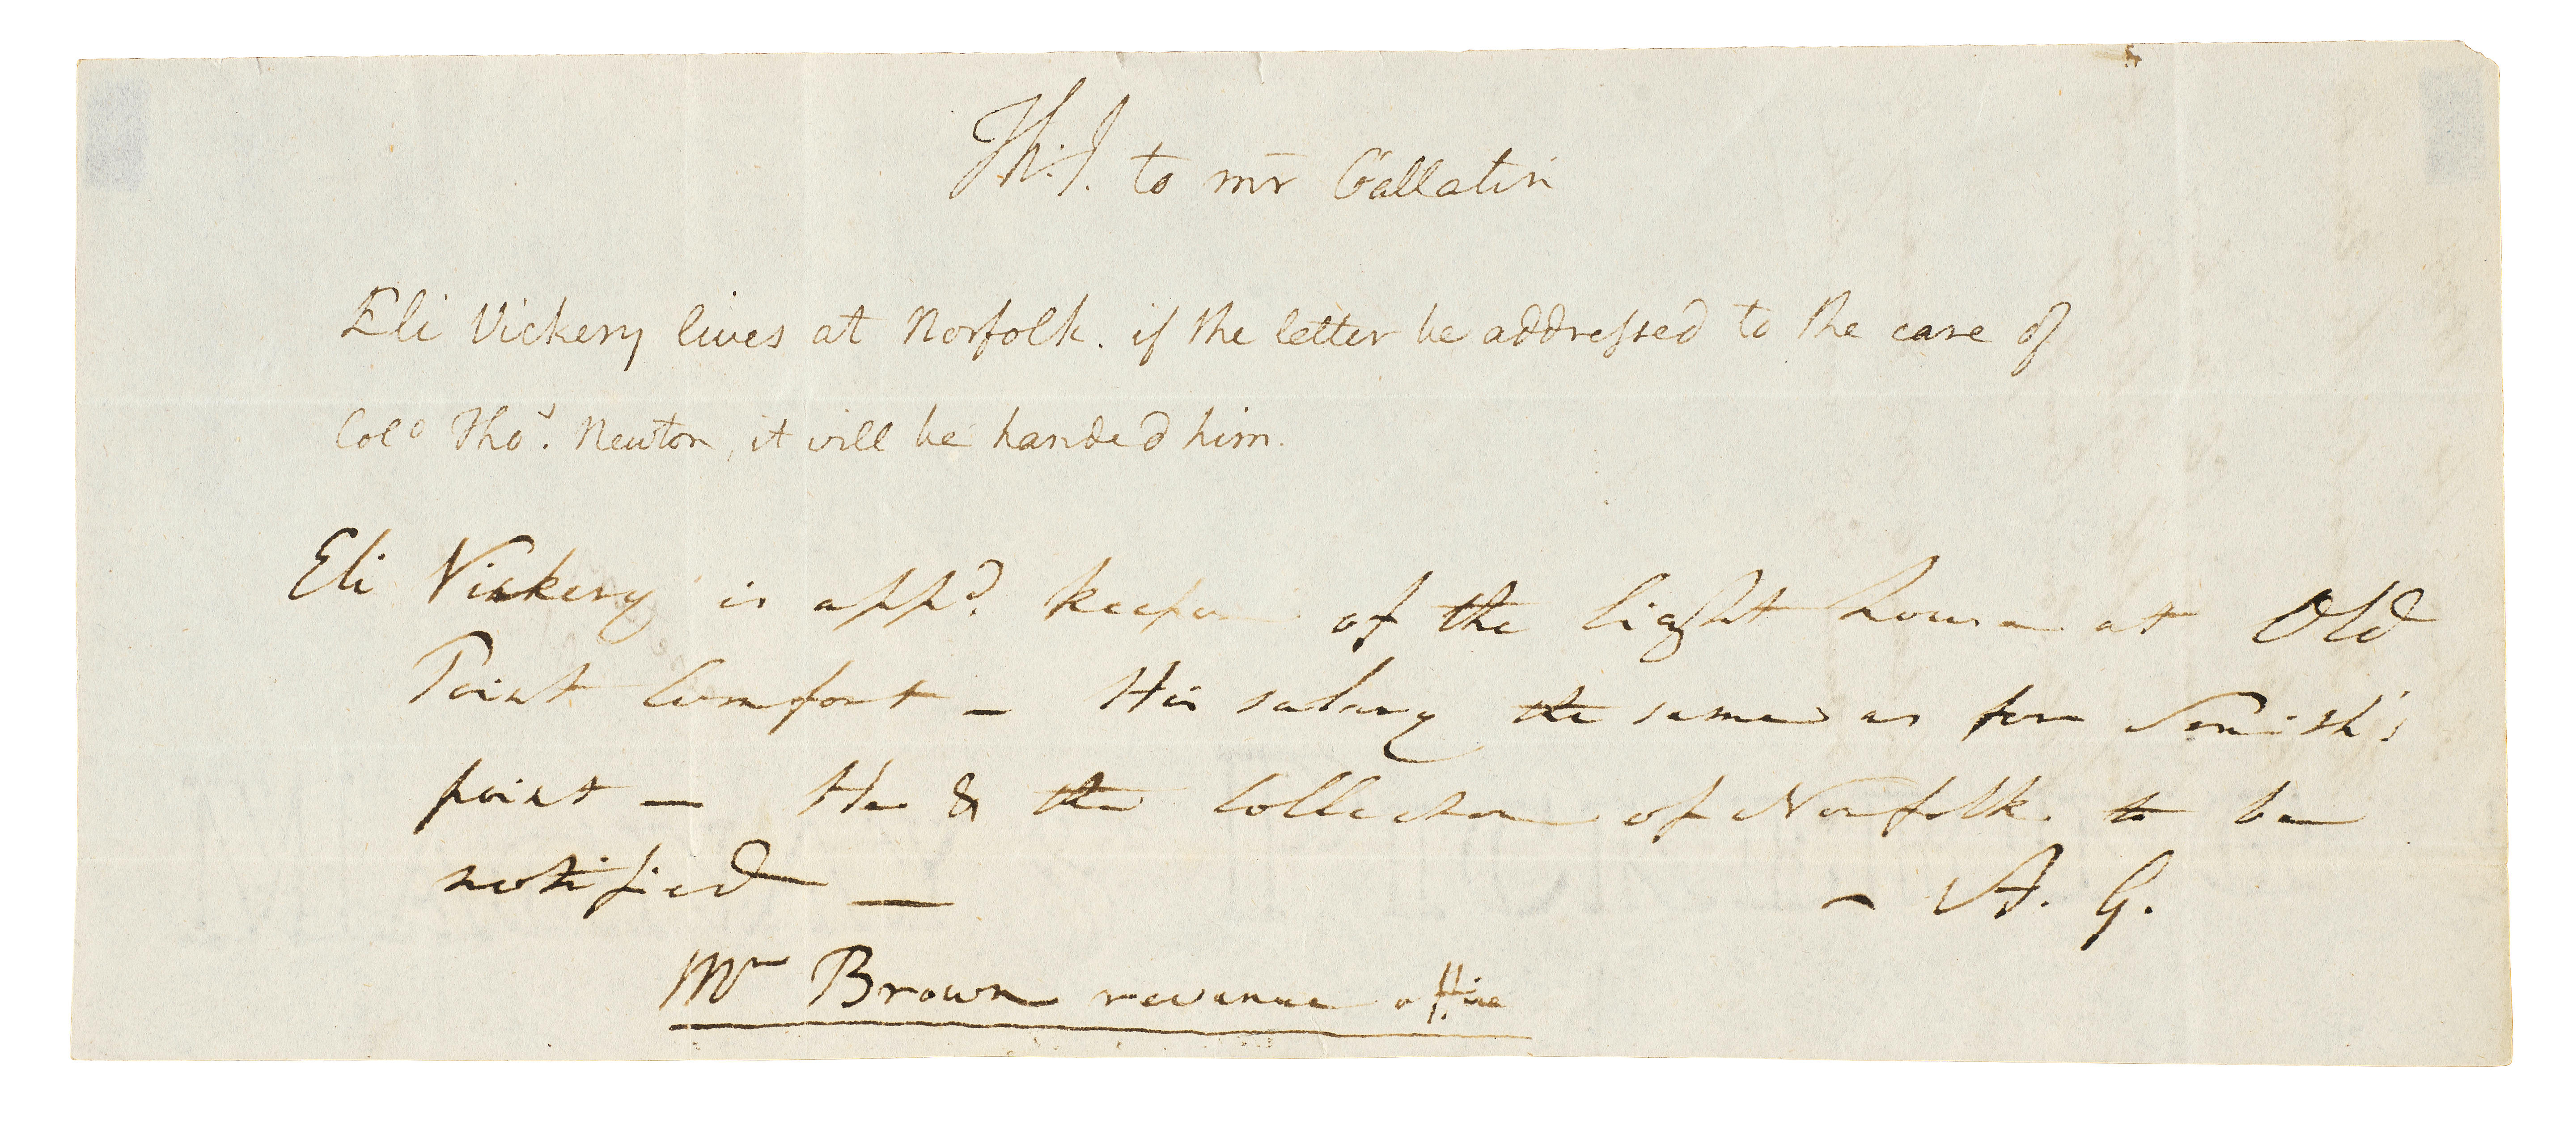 Th: J. to mr Gallatin
Eli Vickery lives at Norfolk. if the letter be addressed to the care of
Colo Thos. Newton, it will be handed him.
Eli Vickery is appd. keeper of the light house at Old
Point Comfort — His salary the same as for Smith's
point — He & the Collector of Norfolk to be
notified —
- A. G.
Mr Brown revenue office